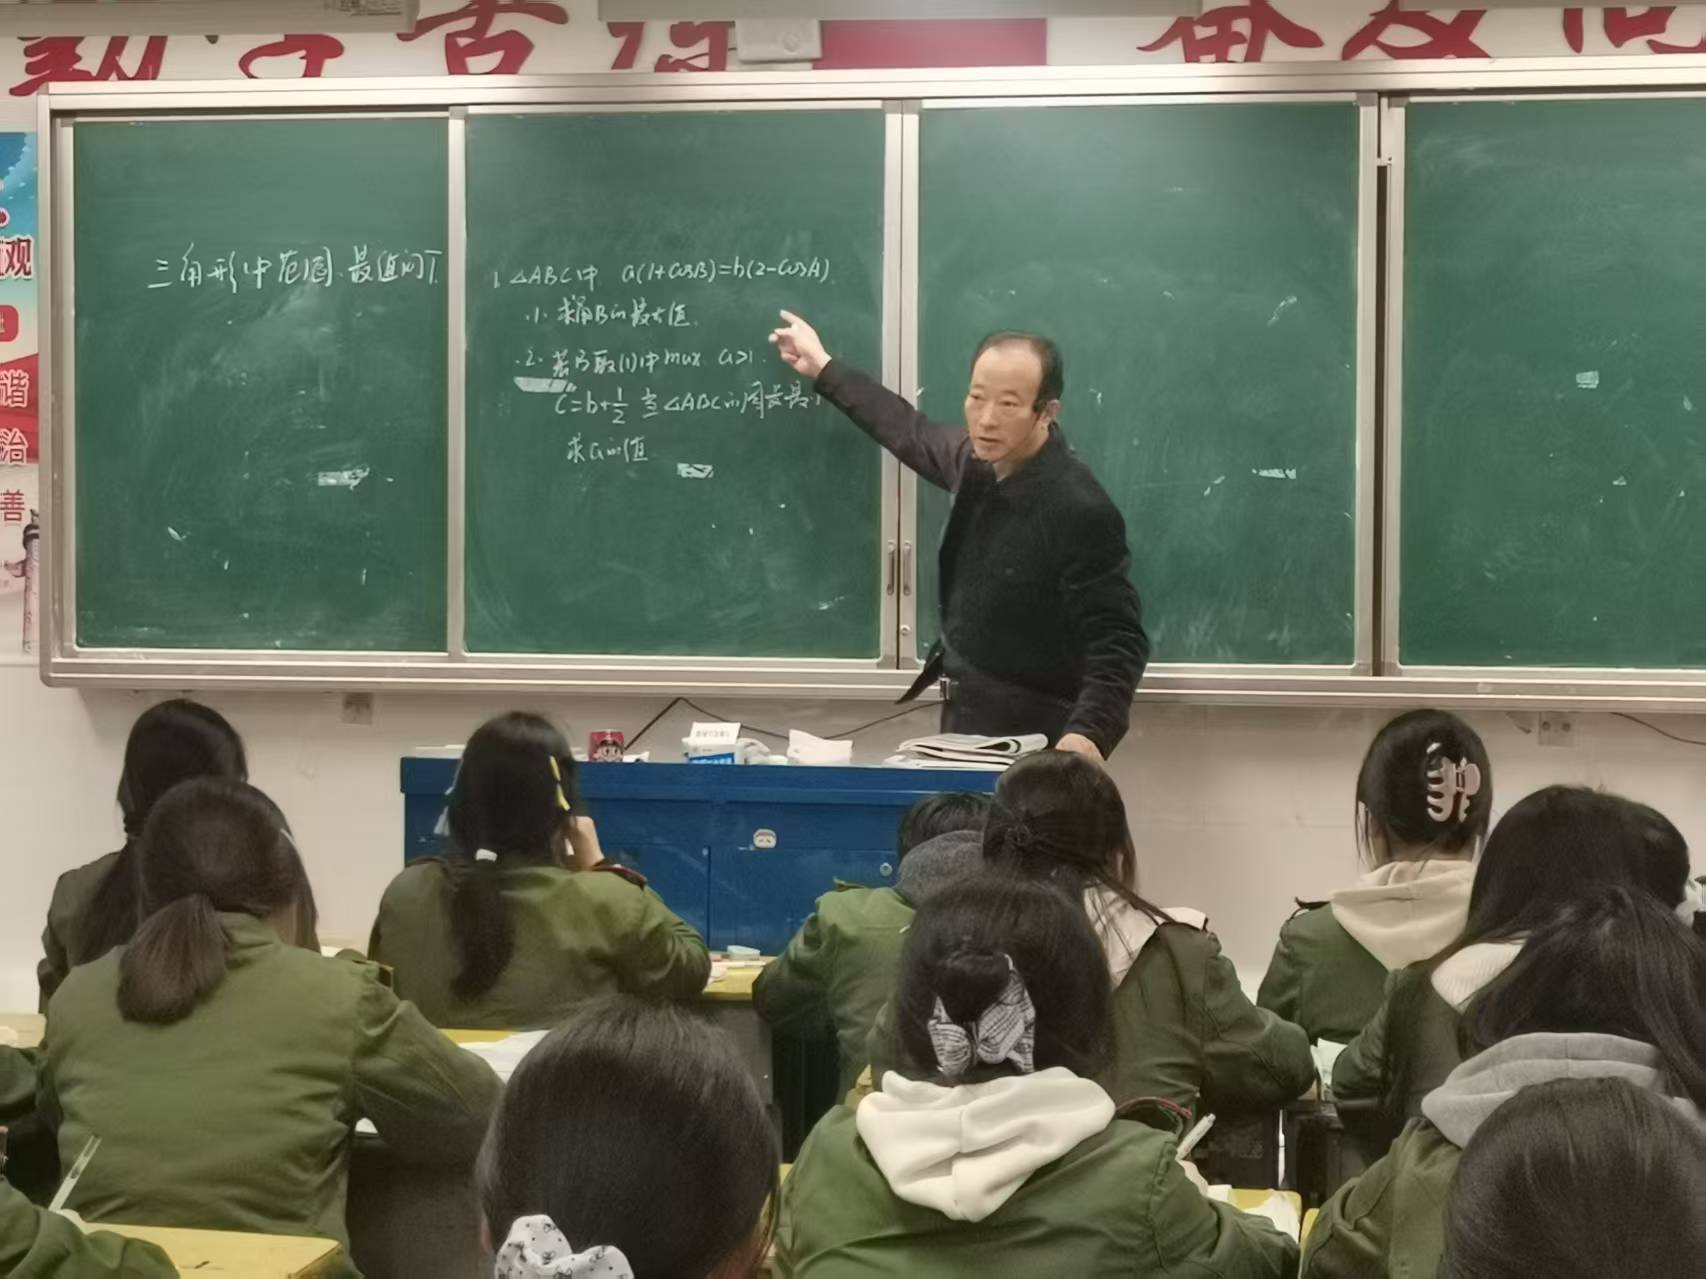 三角形中范围、最值问
1. △ABC中, a(1+cosB)=b(2-cosA).
(1) 求角B的最大值.
(2) 若B取(1)中max, a>1.
c=b+1/2 当△ABC的周长最
求a的值
观
谐
治
善